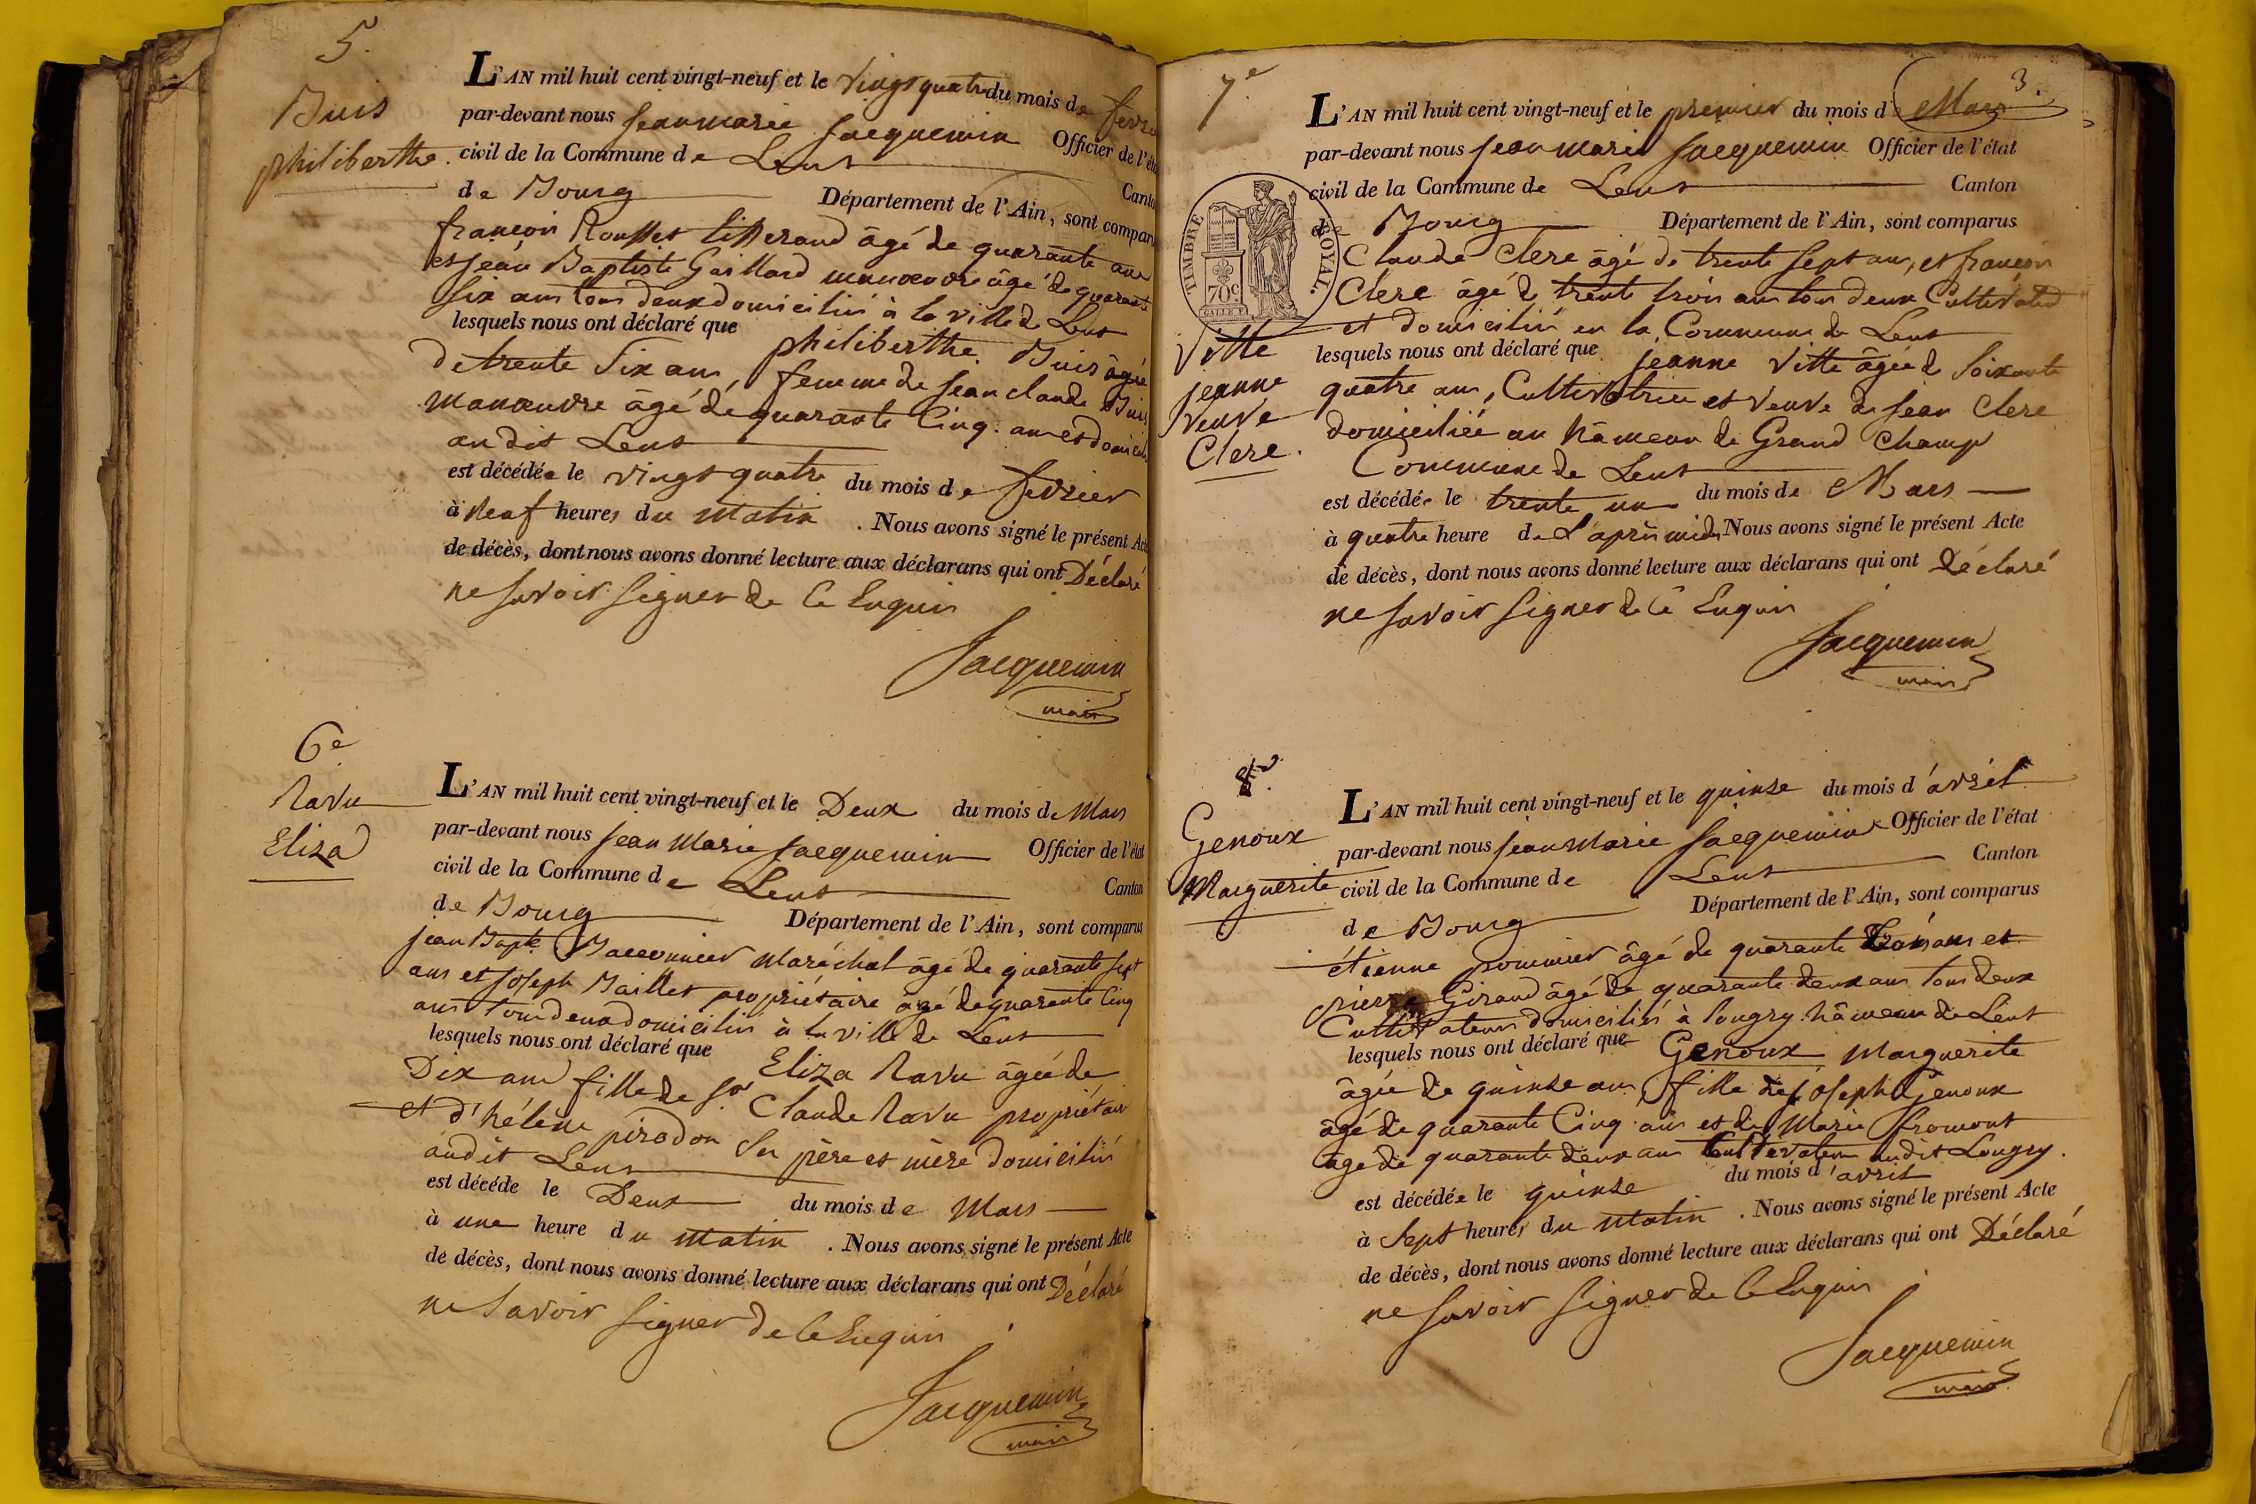 5.
Buis
philiberthe.
L'AN mil huit cent vingt-neuf et le vingt quatre du mois de fevri
par-devant nous jean marie jacquemin Officier de l'éta
civil de la Commune de Lent Canto
de Bourg Département de l'Ain, sont compar
françois Rousset tisserand âgé de quarante ans
et jean Baptiste Gaillard manœuvre âgé de quarante
six ans tous deux domiciliés à la ville de Lent
lesquels nous ont déclaré que philiberthe Buis âgée
de trente six ans, femme de jean claude Buis
manœuvre âgé de quarante cinq ans et domicil
au dit Lent
est décédée le vingt quatre du mois de fevrier
à neuf heures du matin. Nous avons signé le présent Acte
de décès, dont nous avons donné lecture aux déclarans qui ont Déclaré
ne savoir signer de ce Enquis
Jacquemin
maire
6e
Ravu
Eliza
L'AN mil huit cent vingt-neuf et le Deux du mois de Mars
par-devant nous jean Marie jacquemin Officier de l'état
civil de la Commune de Lent Canton
de Bourg Département de l'Ain, sont comparus
jean Bapte Baconnier Maréchal âgé de quarante sept
ans et joseph Baillet propriétaire âgé de quarante cinq
ans tous deux domiciliés à la ville de Lent
lesquels nous ont déclaré que Eliza Ravu âgée de
Dix ans fille de sr Claude Ravu propriétaire
et d'hélène pirodon ses père et mère domiciliés
audit Lent
est décéde le Deux du mois de Mars
à une heure du matin. Nous avons signé le présent Acte
de décès, dont nous avons donné lecture aux déclarans qui ont Déclaré
ne savoir signer de ce Enquis
Jacquemin
maire
3.
7e
L'AN mil huit cent vingt-neuf et le premier du mois de Mars
par-devant nous jean marie jacquemin Officier de l'état
civil de la Commune de Lent Canton
de Bourg Département de l'Ain, sont comparus
TIMBRE ROYAL.
70c
Claude Clere âgé de trente sept ans, et françois
Clere âgé de trente trois ans tous deux Cultivateurs
et domiciliés en la Commune de Lent
Vitte
jeanne
veuve
Clere.
lesquels nous ont déclaré que jeanne Vitte âgée de soixante
quatre ans, Cultivatrice et veuve de jean Clere
domiciliée au hâmeau de Grand Champ
Commune de Lent
est décédée le trente un du mois de Mars
à quatre heure de L'après midi Nous avons signé le présent Acte
de décès, dont nous avons donné lecture aux déclarans qui ont Déclaré
ne savoir signer de ce Enquis
Jacquemin
maire
8e.
Genoux
Marguerite
L'AN mil huit cent vingt-neuf et le quinse du mois d'avril
par-devant nous jean Marie jacquemin Officier de l'état
civil de la Commune de Lent Canton
de Bourg Département de l'Ain, sont comparus
étienne pommier âgé de quarante trois ans et
pierre Giraud âgé de quarante deux ans tous deux
Cultivateurs domiciliés à Longry hâmeau de Lent
lesquels nous ont déclaré que Genoux Marguerite
âgée de quinse ans, fille de joseph Genoux
âgé de quarante Cinq ans et de Marie fromont
âgé de quarante deux ans Cultivateurs audit Longry.
est décédée le quinse du mois d'avril
à sept heures du matin. Nous avons signé le présent Acte
de décès, dont nous avons donné lecture aux déclarans qui ont Déclaré
ne savoir signer de ce Enquis
Jacquemin
maire